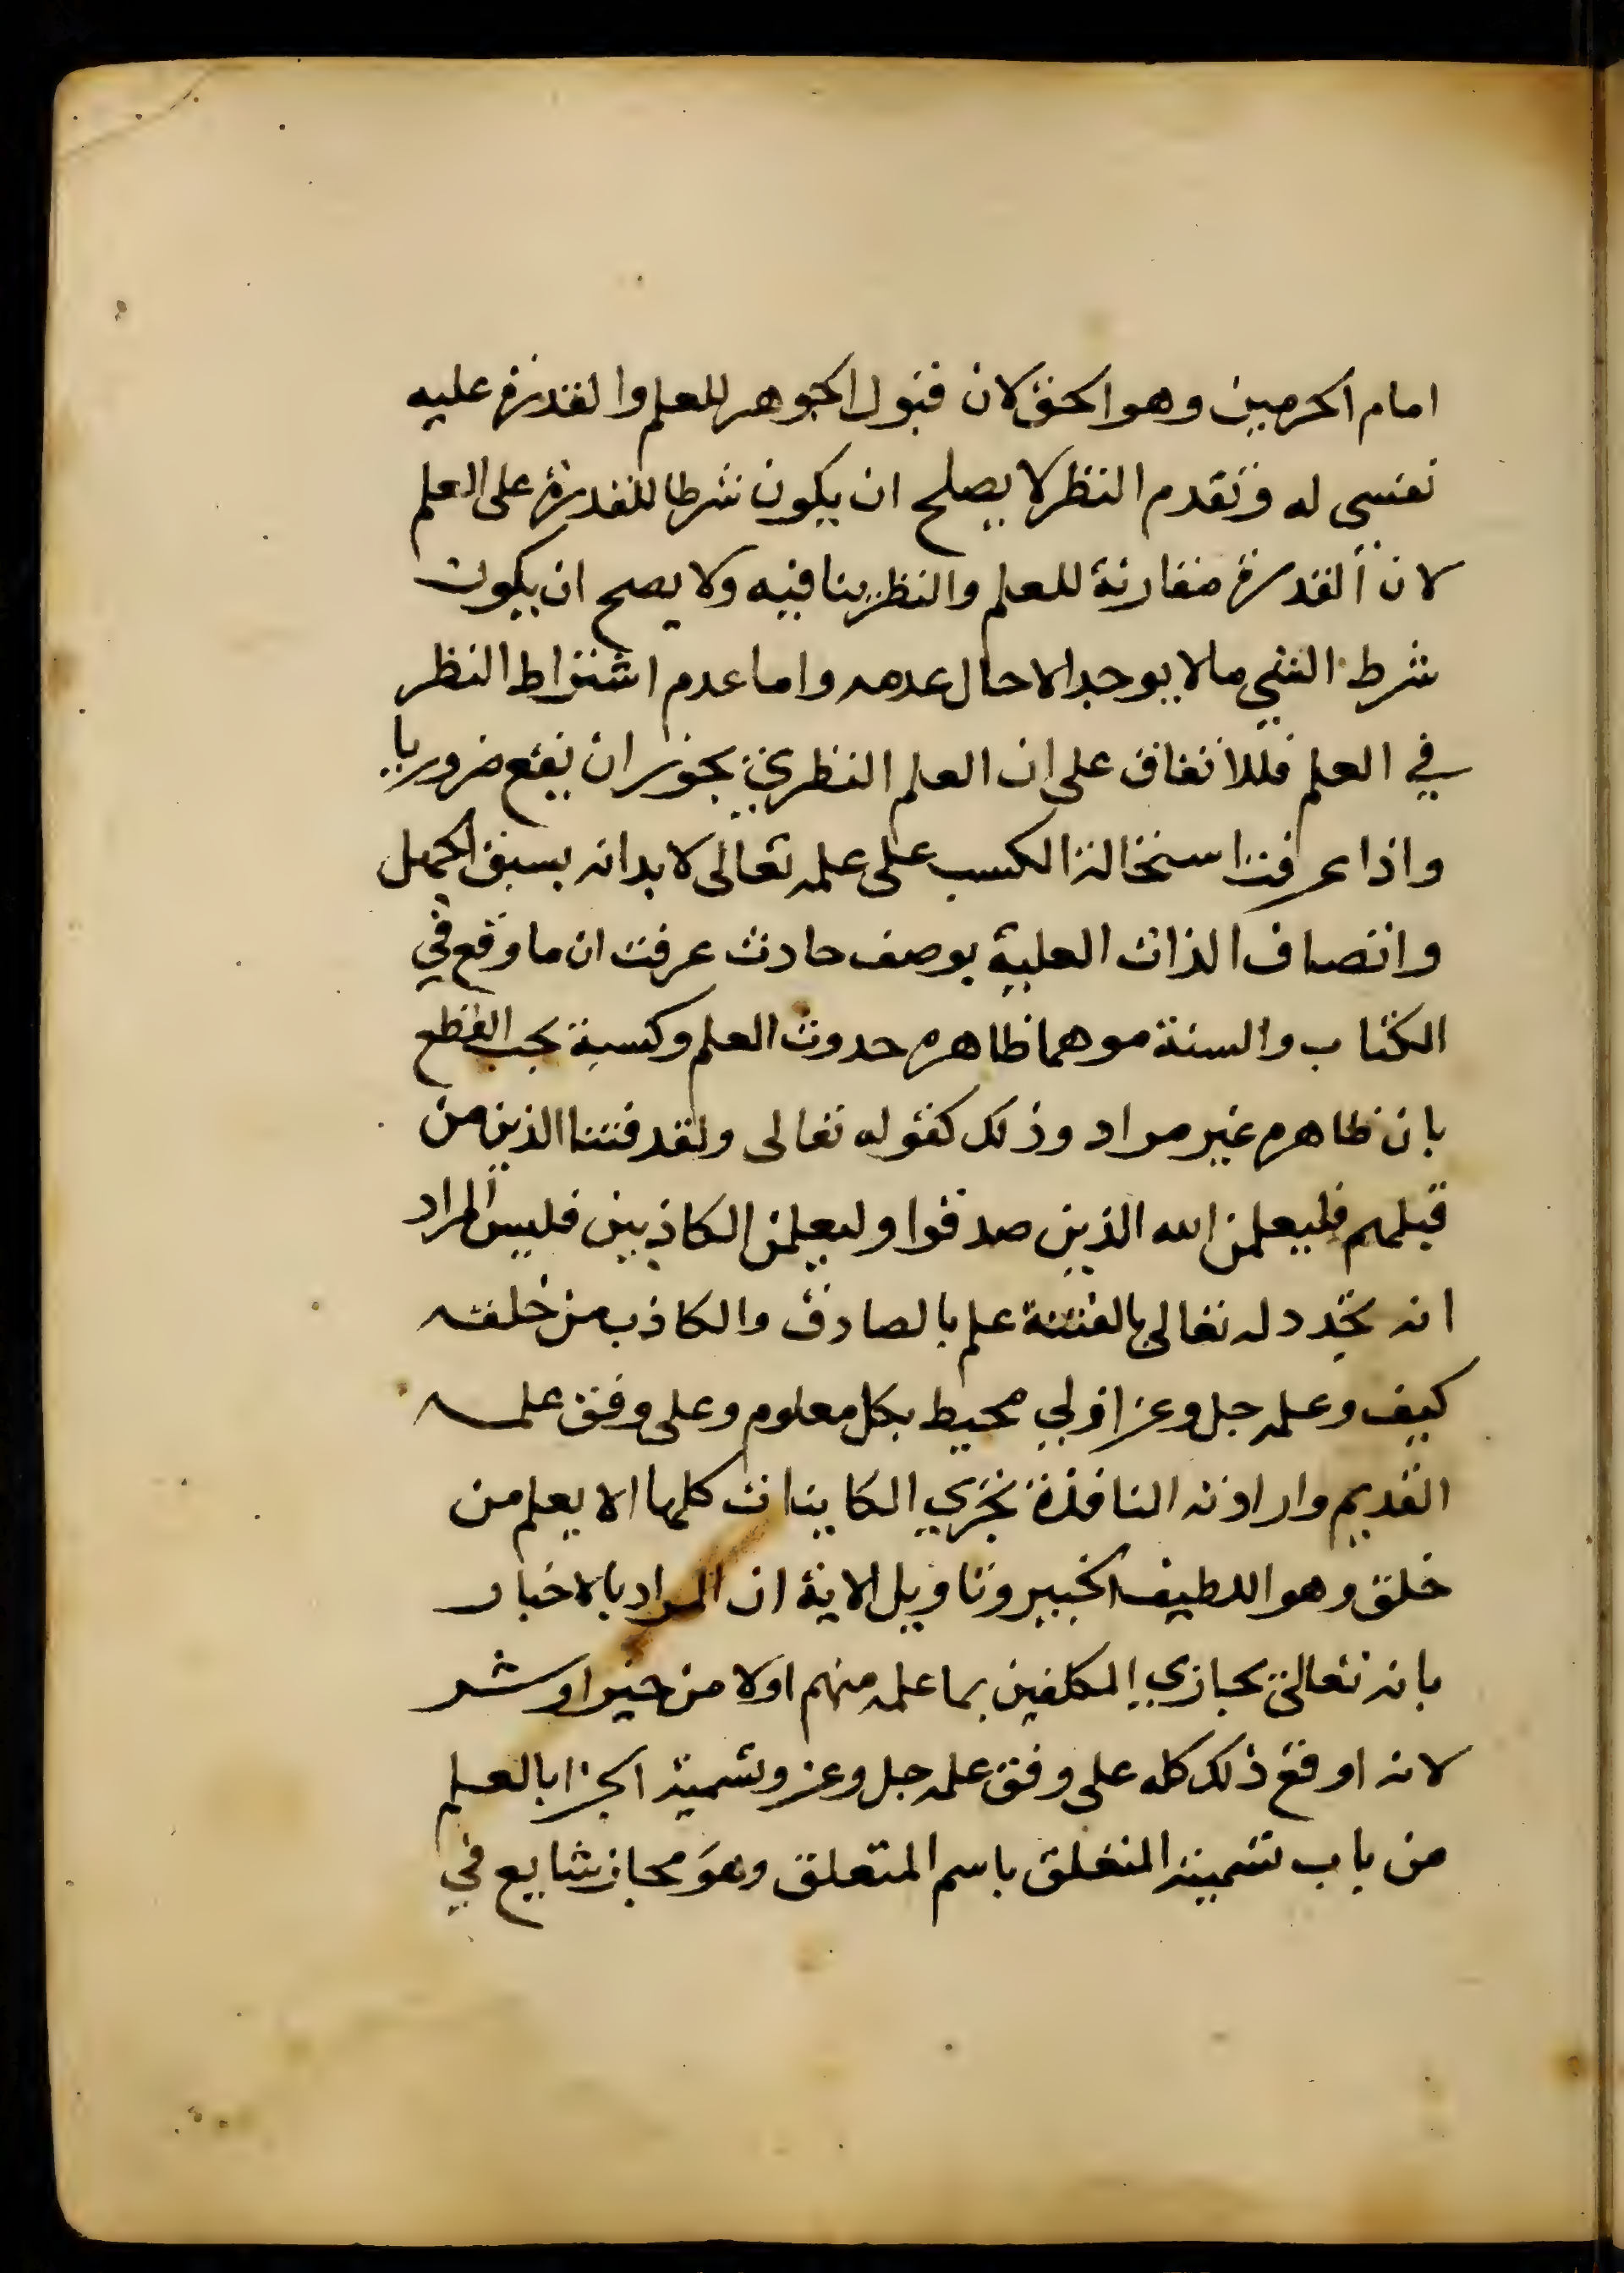 امام الحرمين وهو الحق لان قبول الجوهر للعلم والقدرة عليه
نفسي له وتقدم النظر لا يصلح ان يكون شرطا للقدرة على العلم
لان القدرة مقارنة للعلم والنظر ينافيه ولا يصح ان يكون
شرط الشي مالا يوجد الا حال عدمه واما عدم اشتراط النظر
في العلم فللاتفاق على ان العلم النظري يجوز ان يقع ضروريا
واذا عرفت استحالة الكسب على علمه تعالى لابدانه بسبق الجهل
واتصاف الذات العلية بوصف حادث عرفت ان ما وقع في
الكتاب والسنة موهما ظاهره حدوث العلم وكسبة يجب القطع
بان ظاهره غير مراد وذلك كقوله تعالى ولقد فتنا الذين من
قبلهم فليعلمن الله الذين صدقوا وليعلمن الكاذبين فليس المراد
انه تجدد له تعالى بالفتنة علم بالصادق والكاذب من خلقه
كيف وعلمه جل وعز ازلي محيط بكل معلوم وعلى وفق علمه
القديم وارادته النافذة تجري الكاينات كلها الا يعلم من
خلق وهو اللطيف الخبير وتاويل الاية ان المراد بالاخبار
بانه تعالى يجازي المكلفين بما علمه منهم اولا من خير او شر
لانه اوقع ذلك كله على وفق علمه جل وعز وتسمية الجزا بالعلم
من باب تسمية المتعلق باسم المتعلق وهو مجاز شايع في